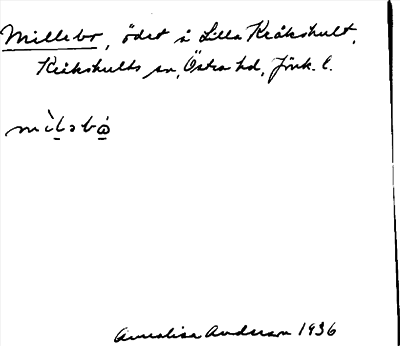 Millebo, ödet å Lilla Kråkshult,
Kråkshults sn, Östra hd, Jönk. l.
mìləbó
Annalisa Anderson 1936